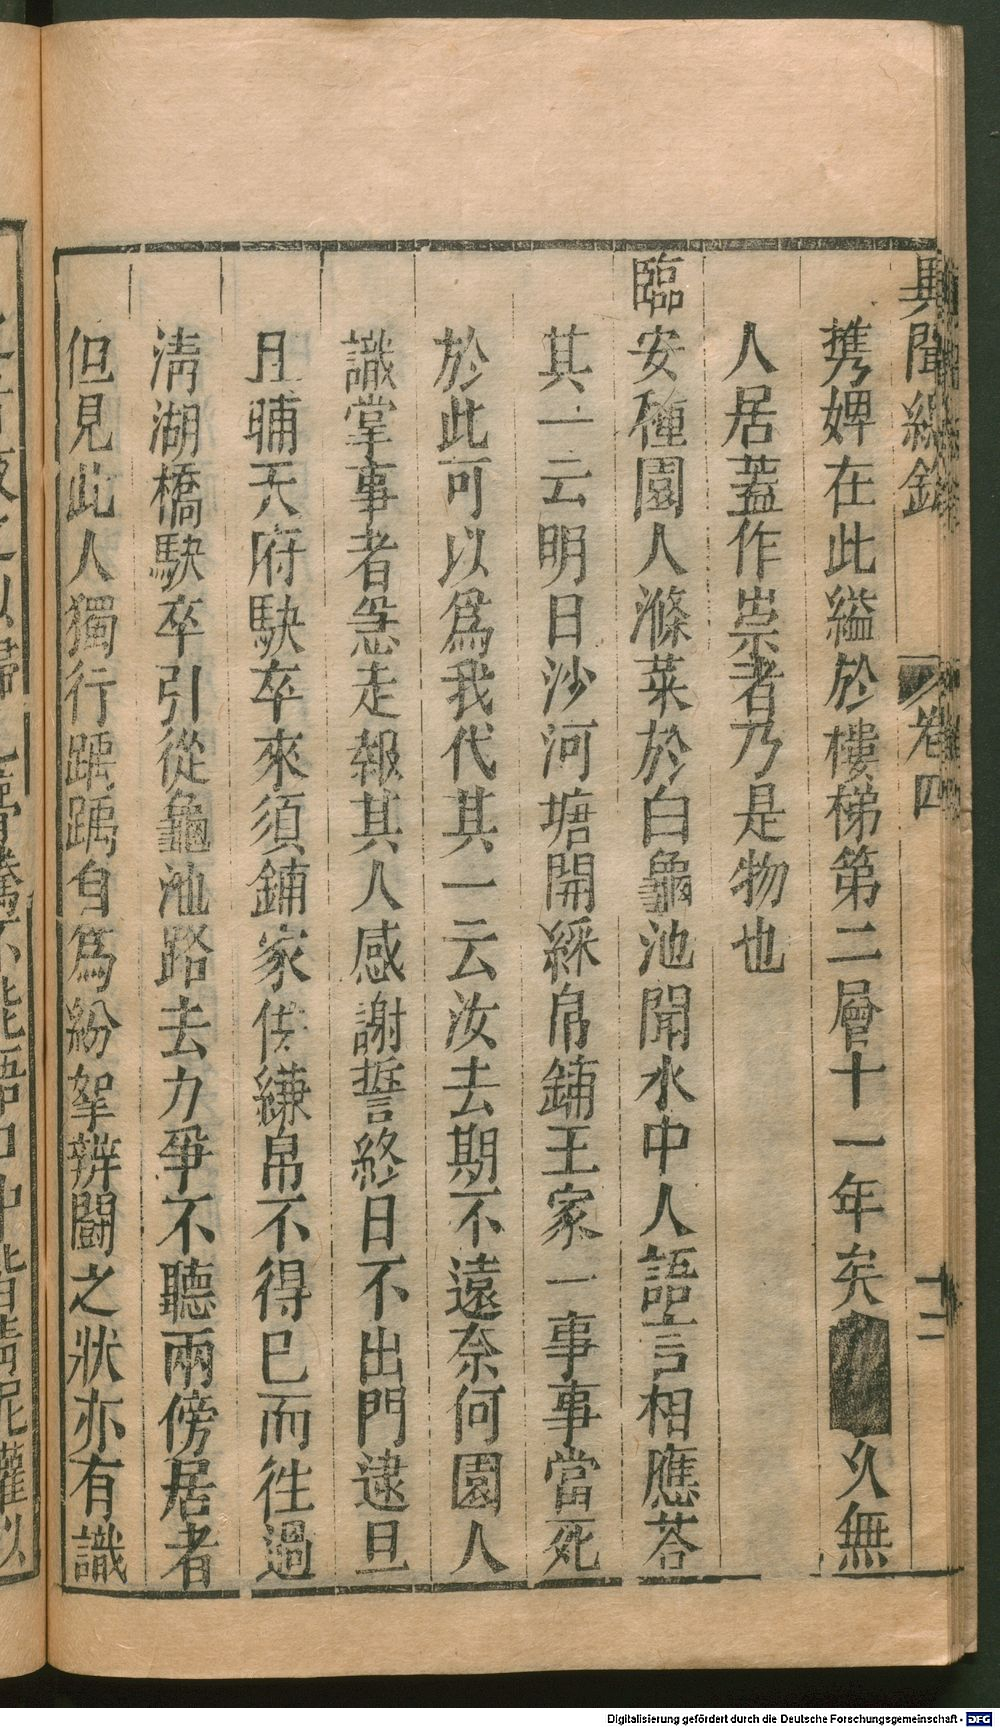 異聞總錄
卷四
十二
携婢在此縊於樓梯第二層十一年矣 久無
人居蓋作祟者乃是物也
臨安種園人滌菜於白龜池聞水中人語言相應荅
其一云明日沙河塘開綵帛鋪王家一事事當死
於此可以爲我代其一云汝去期不遠奈何園人
識掌事者急走報其人感謝誓終日不出門逮旦
且晡天府駃卒來須鋪家供縑帛不得巳而徃過
淸湖橋駃卒引從龜池路去力爭不聽兩傍居者
但見此人獨行踽踽自爲紛拏辨鬭之狀亦有識
Digitalisierung gefördert durch die Deutsche Forschungsgemeinschaft - DFG